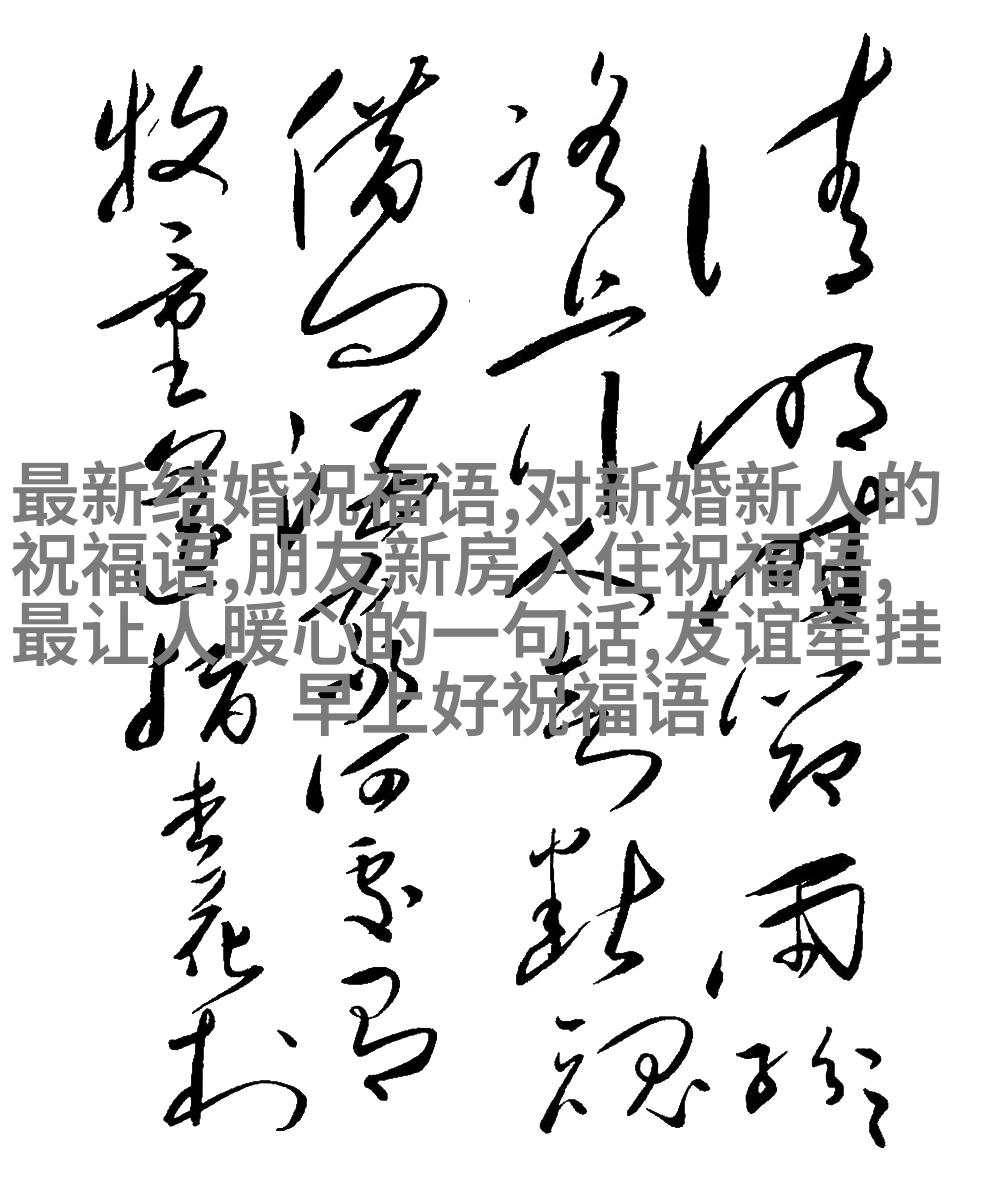 清明時節雨紛々
路上行人欲斷魂
借問酒家何處有
牧童遙指杏花村
最新结婚祝福语,对新婚新人的
祝福语,朋友新房入住祝福语,
最让人暖心的一句话,友谊牵挂
早上好祝福语